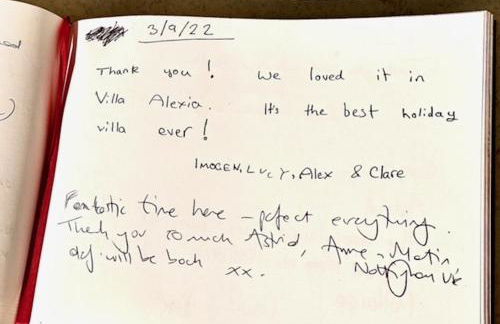 3/9/22
Thank you! We loved it in
Villa Alexia. It's the best holiday
villa ever!
IMOGEN, LUCY, Alex & Clare
Fantastic time here - perfect everything.
Thank you so much Astrid, Anne & Martin
def. will be back xx. Nottingham UK